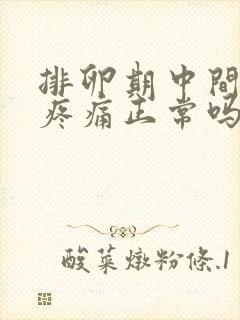 排卵期中間
疼痛正常吗
酸菜燉粉條.1